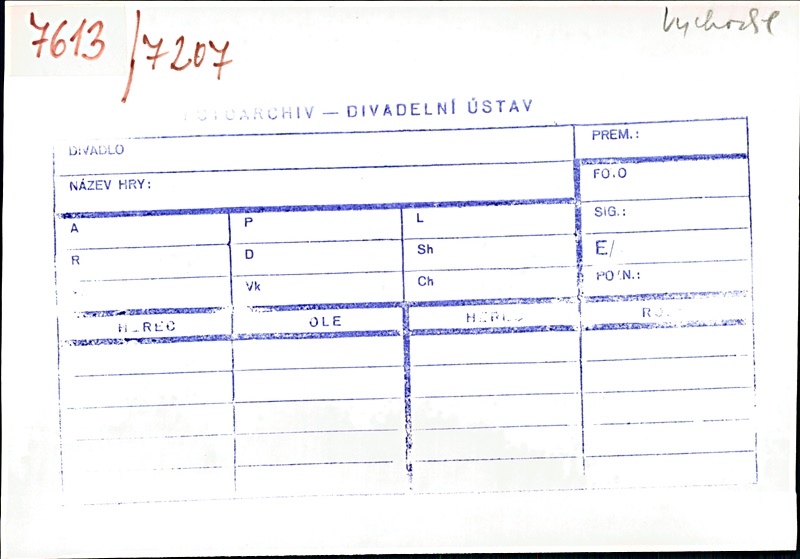 7613 /7207
Vychodil
FOTOARCHIV — DIVADELNÍ ÚSTAV
DIVADLO
PREM.:
NÁZEV HRY:
FO.O
A
P
L
SIG.:
R
D
Sh
E/
Vk
Ch
POZN.:
HEREC
OLE
HEREC
RO